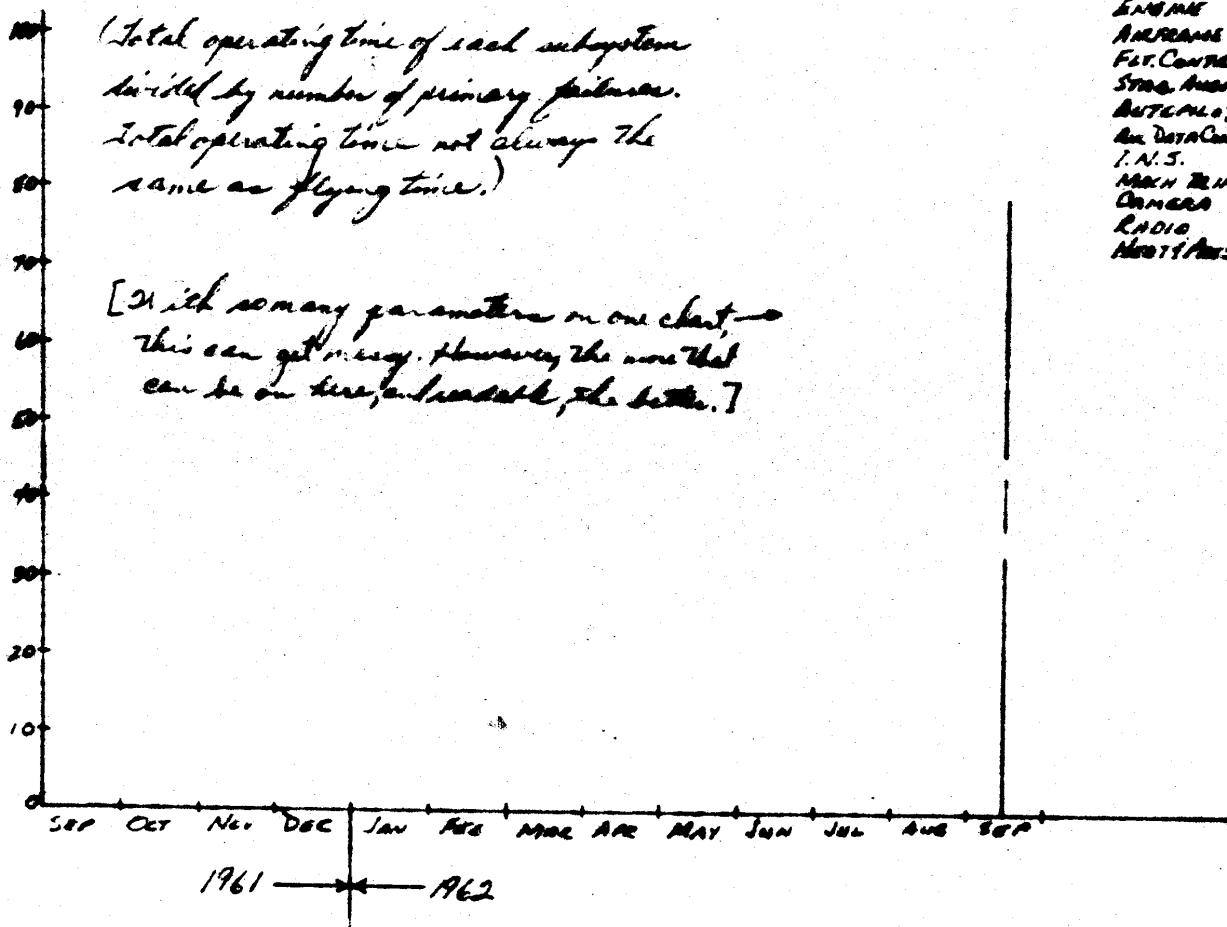 100
90
80
70
60
50
40
30
20
10
0
(Total operating time of each subsystem
divided by number of primary failures.
Total operating time not always the
same as flying time.)
[With so many parameters on one chart,
this can get messy. However, the more that
can be on here, and readable, the better.]
ENGINE
AIRFRAME
FLT. CONTR
STAB. AUG
AUTOPILOT
AIR DATA COM
I.N.S.
MACH TRI
CAMERA
RADIO
SEP OCT NOV DEC JAN FEB MAR APR MAY JUN JUL AUG SEP
1961 1962